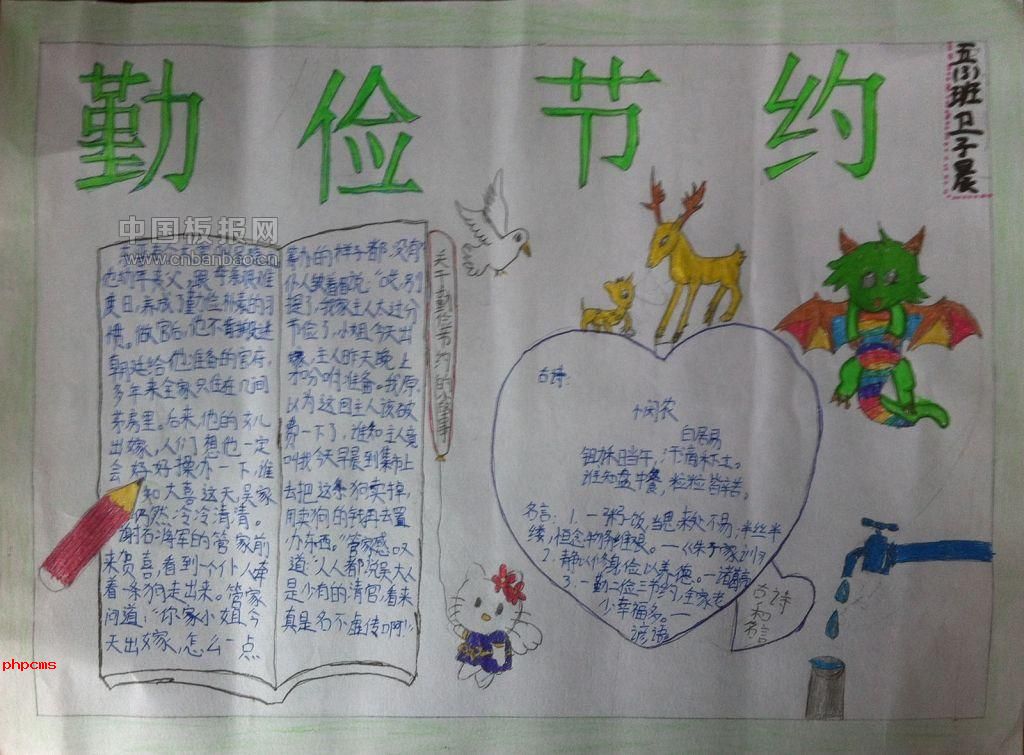 勤俭节约
五(3)班卫子晨
中国板报网
www.cnbanbao.cn
他幼年丧父，跟母亲艰难
度日，养成了勤俭朴素的习
惯。做官后，他不肯搬进
朝廷给他准备的官府，
多年来全家只住在几间
茅房里。后来，他的女儿
出嫁，人们想他一定
会好好操办一下，谁
知大喜这天，吴家
仍然冷冷清清。
谢石将军的管家前
来贺喜，看到一个仆人牵
着一条狗走出来。管家
问道：“你家小姐今
天出嫁，怎么一点
筹办的样子都没有
仆人皱着眉说：“唉，别
提了，我家主人太过分
节俭了，小姐今天出
嫁，主人昨天晚上
才吩咐准备。我原
以为这回主人该破
费一下了，谁知主人竟
叫我今天早晨到集市上
去把这条狗卖掉，
用卖狗的钱再去置
办东西。”管家感叹
道：“人人都说吴大人
是少有的清官，看来
真是名不虚传啊！”
关于勤俭节约的小故事
古诗：
白居易
锄禾日当午，汗滴禾下土。
谁知盘中餐，粒粒皆辛苦。
名言：1.一粥一饭，当思来处不易；半丝半
缕，恒念物力维艰。—《朱子家训》
2.静以修身，俭以养德。—诸葛亮
3.一勤二俭三节约，全家老
少幸福多。—
谚语
古诗
和名言
phpcms